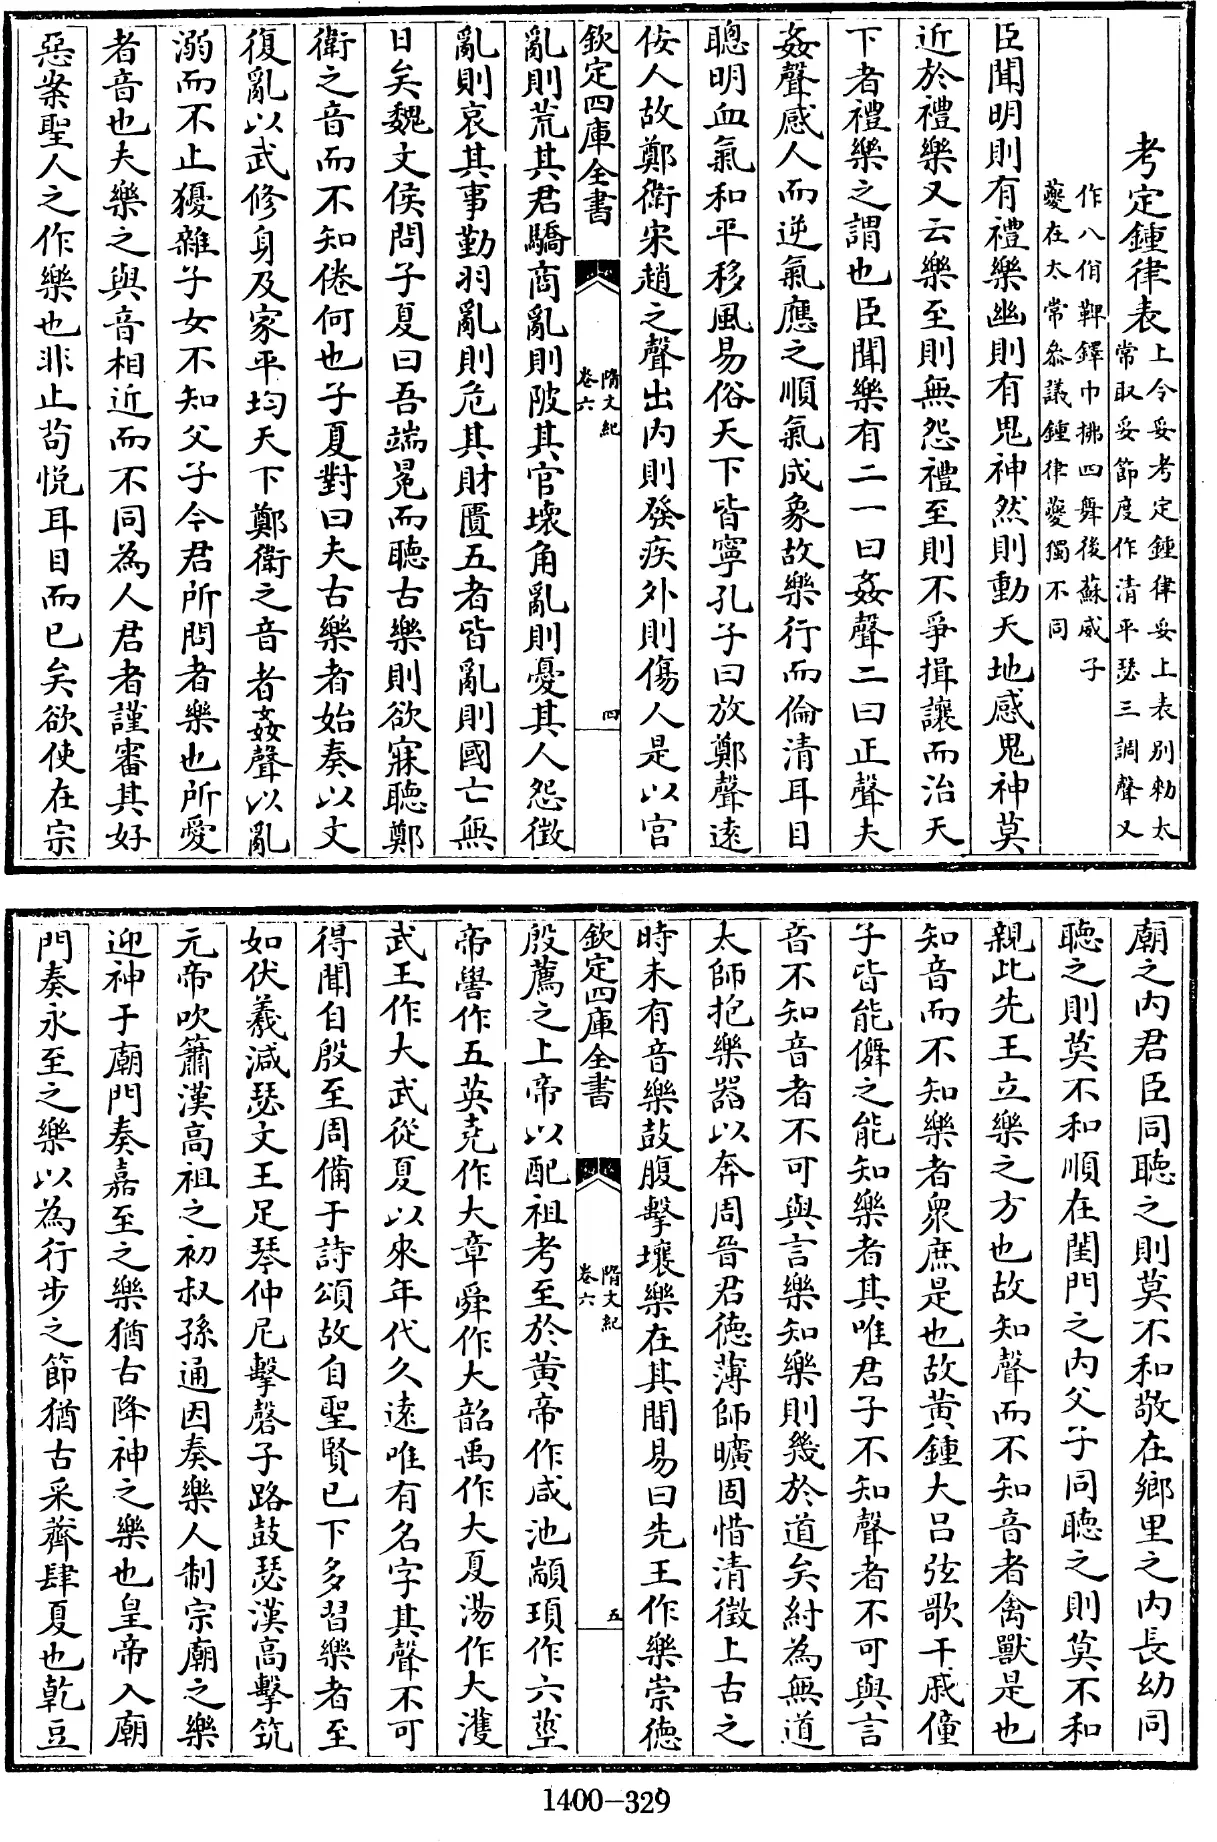 考定鍾律表上令妥考定鍾律妥上表別勅太
常取妥節度作清平瑟三調聲又
作八佾鞞鐸巾拂四舞後蘇威子
夔在太常叅議鍾律夔獨不同
臣聞明則有禮樂幽則有鬼神然則動天地感鬼神莫
近於禮樂又云樂至則無怨禮至則不爭揖讓而治天
下者禮樂之謂也臣聞樂有二一曰姦聲二曰正聲夫
姦聲感人而逆氣應之順氣成象故樂行而倫清耳目
聰明血氣和平移風易俗天下皆寧孔子曰放鄭聲遠
佞人故鄭衛宋趙之聲出内則發疾外則傷人是以宮
欽定四庫全書
隋文紀
卷六
四
亂則荒其君驕商亂則陂其官壞角亂則憂其人怨徵
亂則哀其事勤羽亂則危其財匱五者皆亂則國亡無
日矣魏文侯問子夏曰吾端冕而聽古樂則欲寐聽鄭
衛之音而不知倦何也子夏對曰夫古樂者始奏以文
復亂以武修身及家平均天下鄭衛之音者姦聲以亂
溺而不止獶雜子女不知父子今君所問者樂也所愛
者音也夫樂之與音相近而不同為人君者謹審其好
惡案聖人之作樂也非止苟悦耳目而已矣欲使在宗
廟之内君臣同聽之則莫不和敬在鄉里之内長幼同
聽之則莫不和順在閨門之内父子同聽之則莫不和
親此先王立樂之方也故知聲而不知音者禽獸是也
知音而不知樂者衆庶是也故黃鍾大呂弦歌干戚僮
子皆能儛之能知樂者其唯君子不知聲者不可與言
音不知音者不可與言樂知樂則幾於道矣紂為無道
太師抱樂器以奔周晉君徳薄師曠固惜清徵上古之
時未有音樂鼓腹擊壤樂在其間易曰先王作樂崇徳
欽定四庫全書
隋文紀
卷六
五
殷薦之上帝以配祖考至於黃帝作咸池顓頊作六莖
帝嚳作五英堯作大章舜作大韶禹作大夏湯作大濩
武王作大武從夏以來年代久遠唯有名字其聲不可
得聞自殷至周備于詩頌故自聖賢已下多習樂者至
如伏羲減瑟文王足琴仲尼擊磬子路鼓瑟漢高擊筑
元帝吹簫漢高祖之初叔孫通因奏樂人制宗廟之樂
迎神于廟門奏嘉至之樂猶古降神之樂也皇帝入廟
門奏永至之樂以為行步之節猶古采薺肆夏也乾豆
1400-329